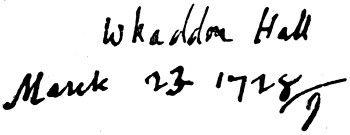 Whaddon Hall
March 23 1728/9